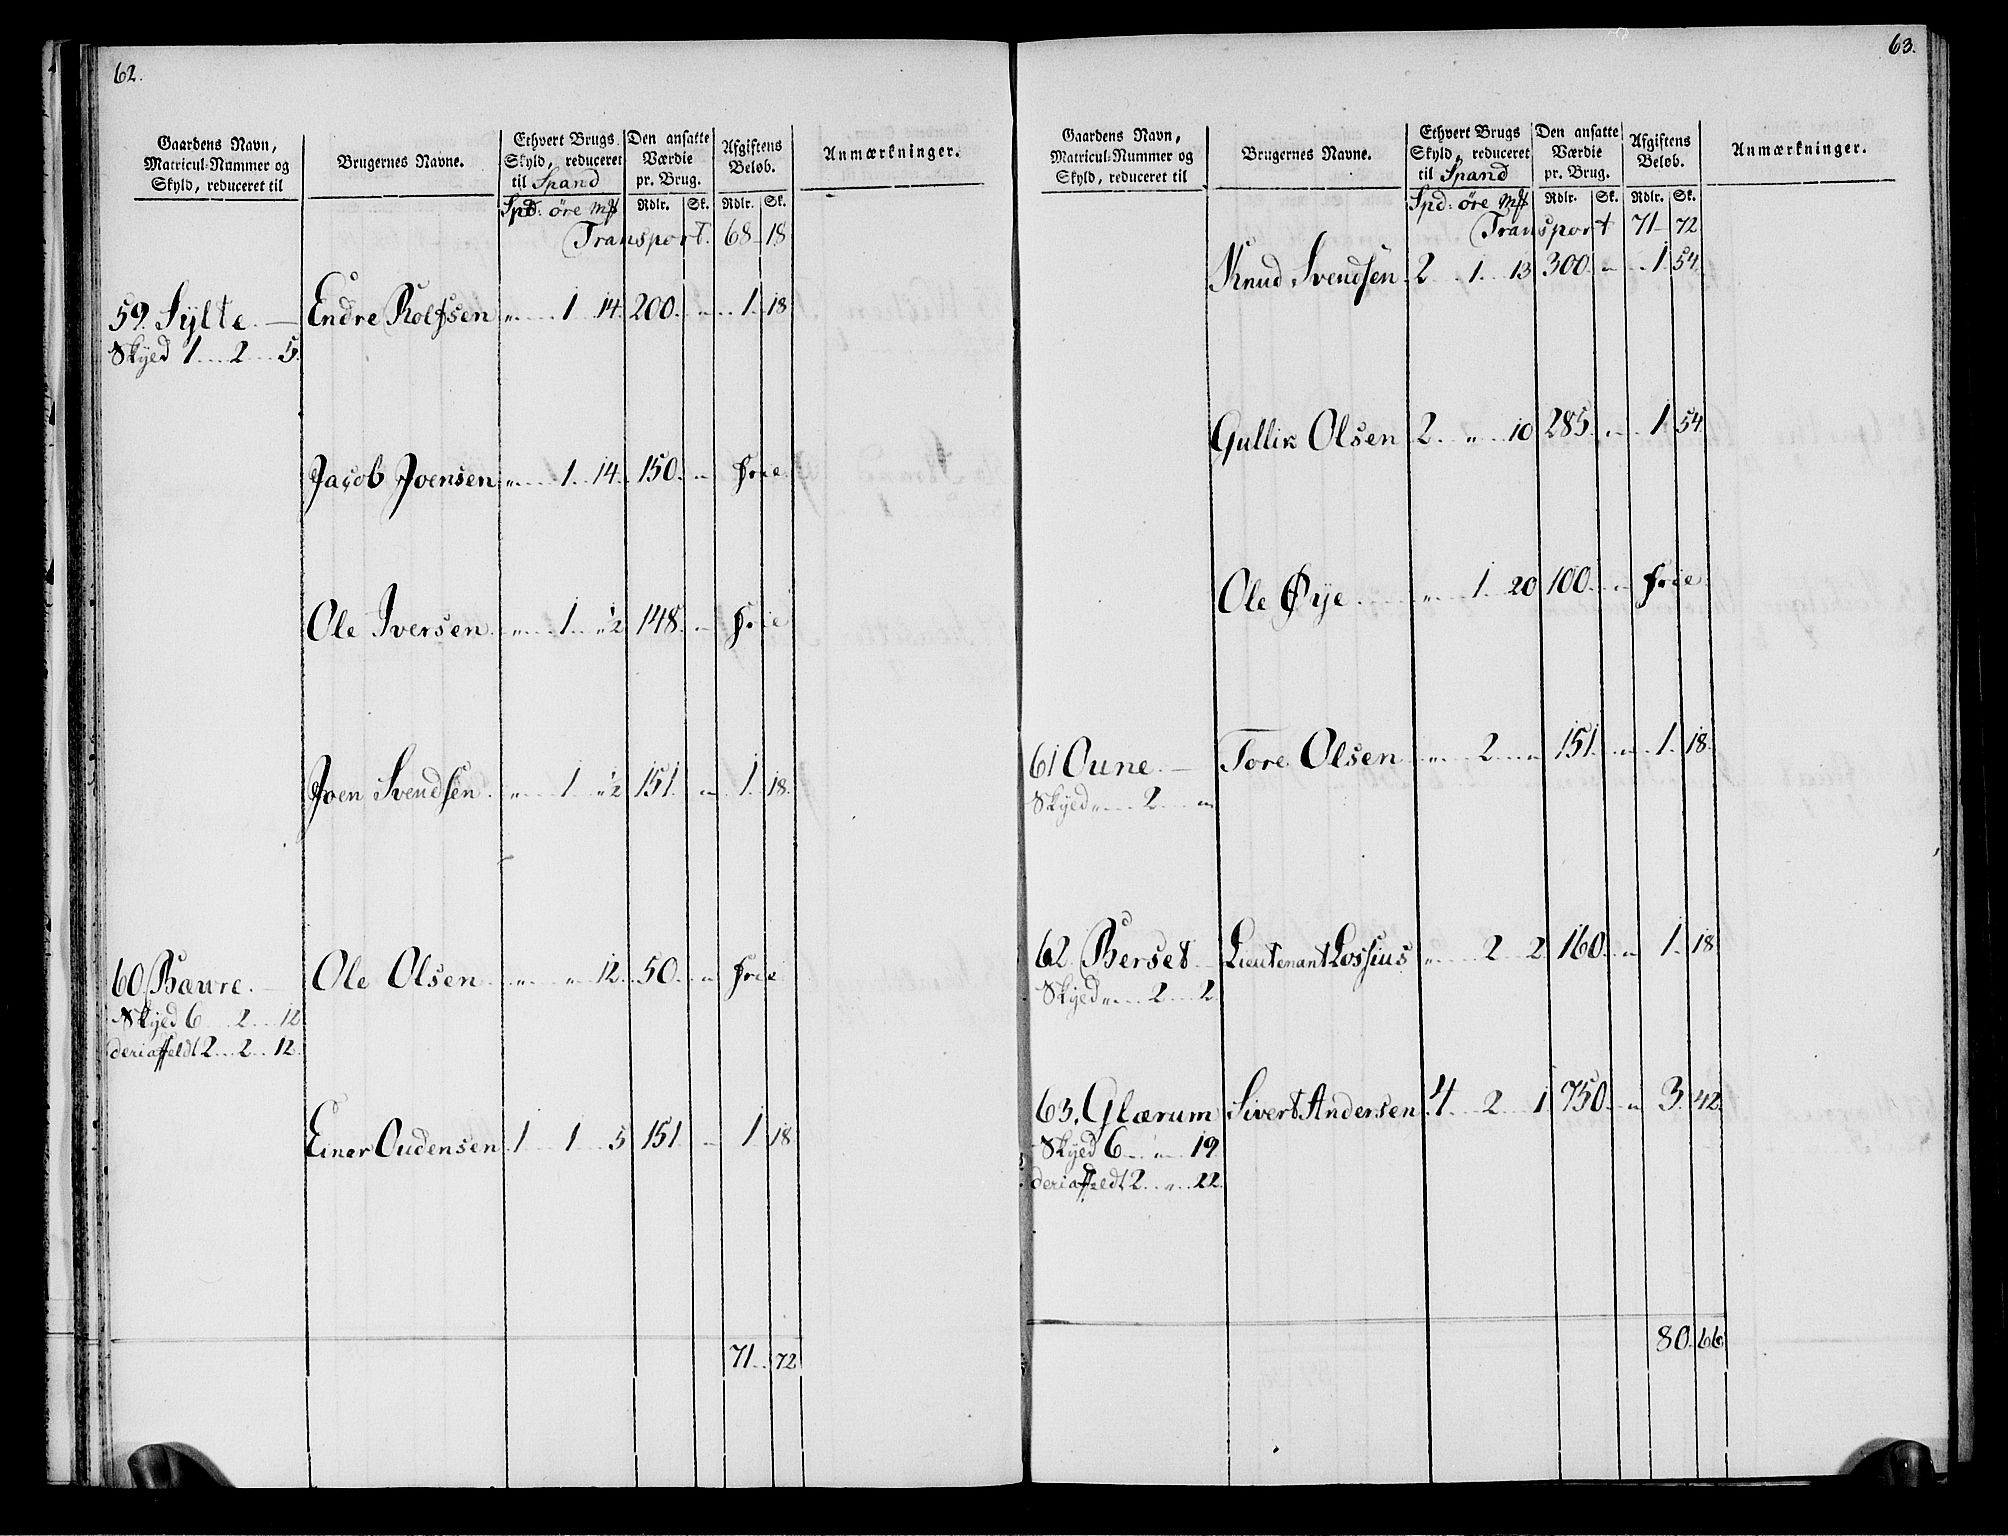 62.
Gaardens Navn, Matricul-Nummer og Skyld, reduceret til
Brugernes Navne.
Ethvert Brugs Skyld, reduceret til Spand
Den ansatte Værdie pr. Brug.
Afgiftens Beløb.
Anmærkninger.
Spd: öre mȝ Rdlr. Sk. Rdlr. Sk.
Transport. 68 - 18
59. Sylte. — Endre Rolfsen „ 1 14. 200. „ 1. 18
Skyed 1 .. 2 .. 5.
Jacob Joensen „ 1. 14. 150. „ frie
Ole Iversen „ 1. „ ½ 148. „ frie
Joen Svendsen „ 1 „ ½ 151. „ 1. 18.
60. Bævre. — Ole Olsen „ „ 12. 50. „ frie
Skyed 6 .. 2 .. 12
deriaf feldt 2 .. 2 .. 12.
Einer Oudensen 1 .. 1 .. 5 151. „ 1 18
71. 72
63.
Gaardens Navn, Matricul-Nummer og Skyld, reduceret til
Brugernes Navne.
Ethvert Brugs Skyld, reduceret til Spand
Den ansatte Værdie pr. Brug.
Afgiftens Beløb.
Anmærkninger.
Spd: öre mȝ Rdlr. Sk. Rdlr. Sk.
Transport 71 - 72
Knud Svendsen 2 .. 1 .. 13 300. „ 1. 54.
Gullik Olsen 2. „ 10 285. „ 1. 54
Ole Øye „ 1. 20 100. „ frie
61 Oune. — Tore Olsen „ 2 „ 151. „ 1. 18.
Skyed „ 2 „
62. Berset — Lieutenant Lossius „ 2 2. 160. „ 1. 18
Skyed „ 2 .. 2.
63. Glærum Sivert Andersen 4 .. 2 1 750. „ 3. 42.
Skyed 6 .. „ .. 19
deriaf feldt 2 .. „ .. 22.
80. 66